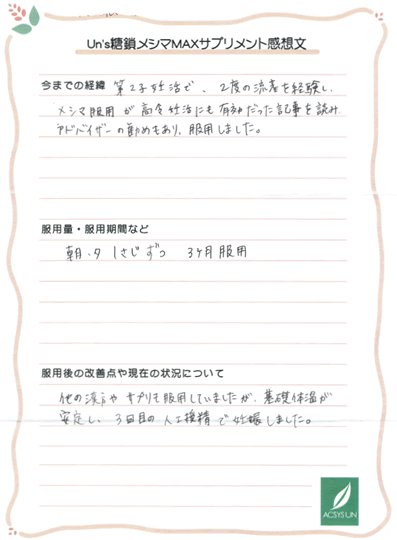 Un's糖鎖メシマMAXサプリメント感想文
今までの経緯 第2子妊活で、2度の流産を経験し、
メシマ服用が高令妊活にも有効だった記事を読み
アドバイザーの勧めもあり、服用しました。
服用量・服用期間など
朝・夕 1さじずつ 3ヶ月服用
服用後の改善点や現在の状況について
他の漢方やサプリも服用していましたが、基礎体温が
安定し、3回目の人工授精で妊娠しました。
ACSYS UN